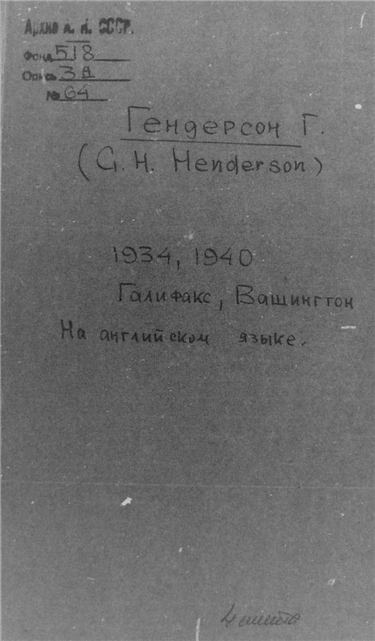 Архив А. Н. СССР.
Фонд 518
Опись 3А
№ 64
Гендерсон Г.
(G. H. Henderson)
1934, 1940
Галифакс, Вашингтон
На английском языке.
4 листа